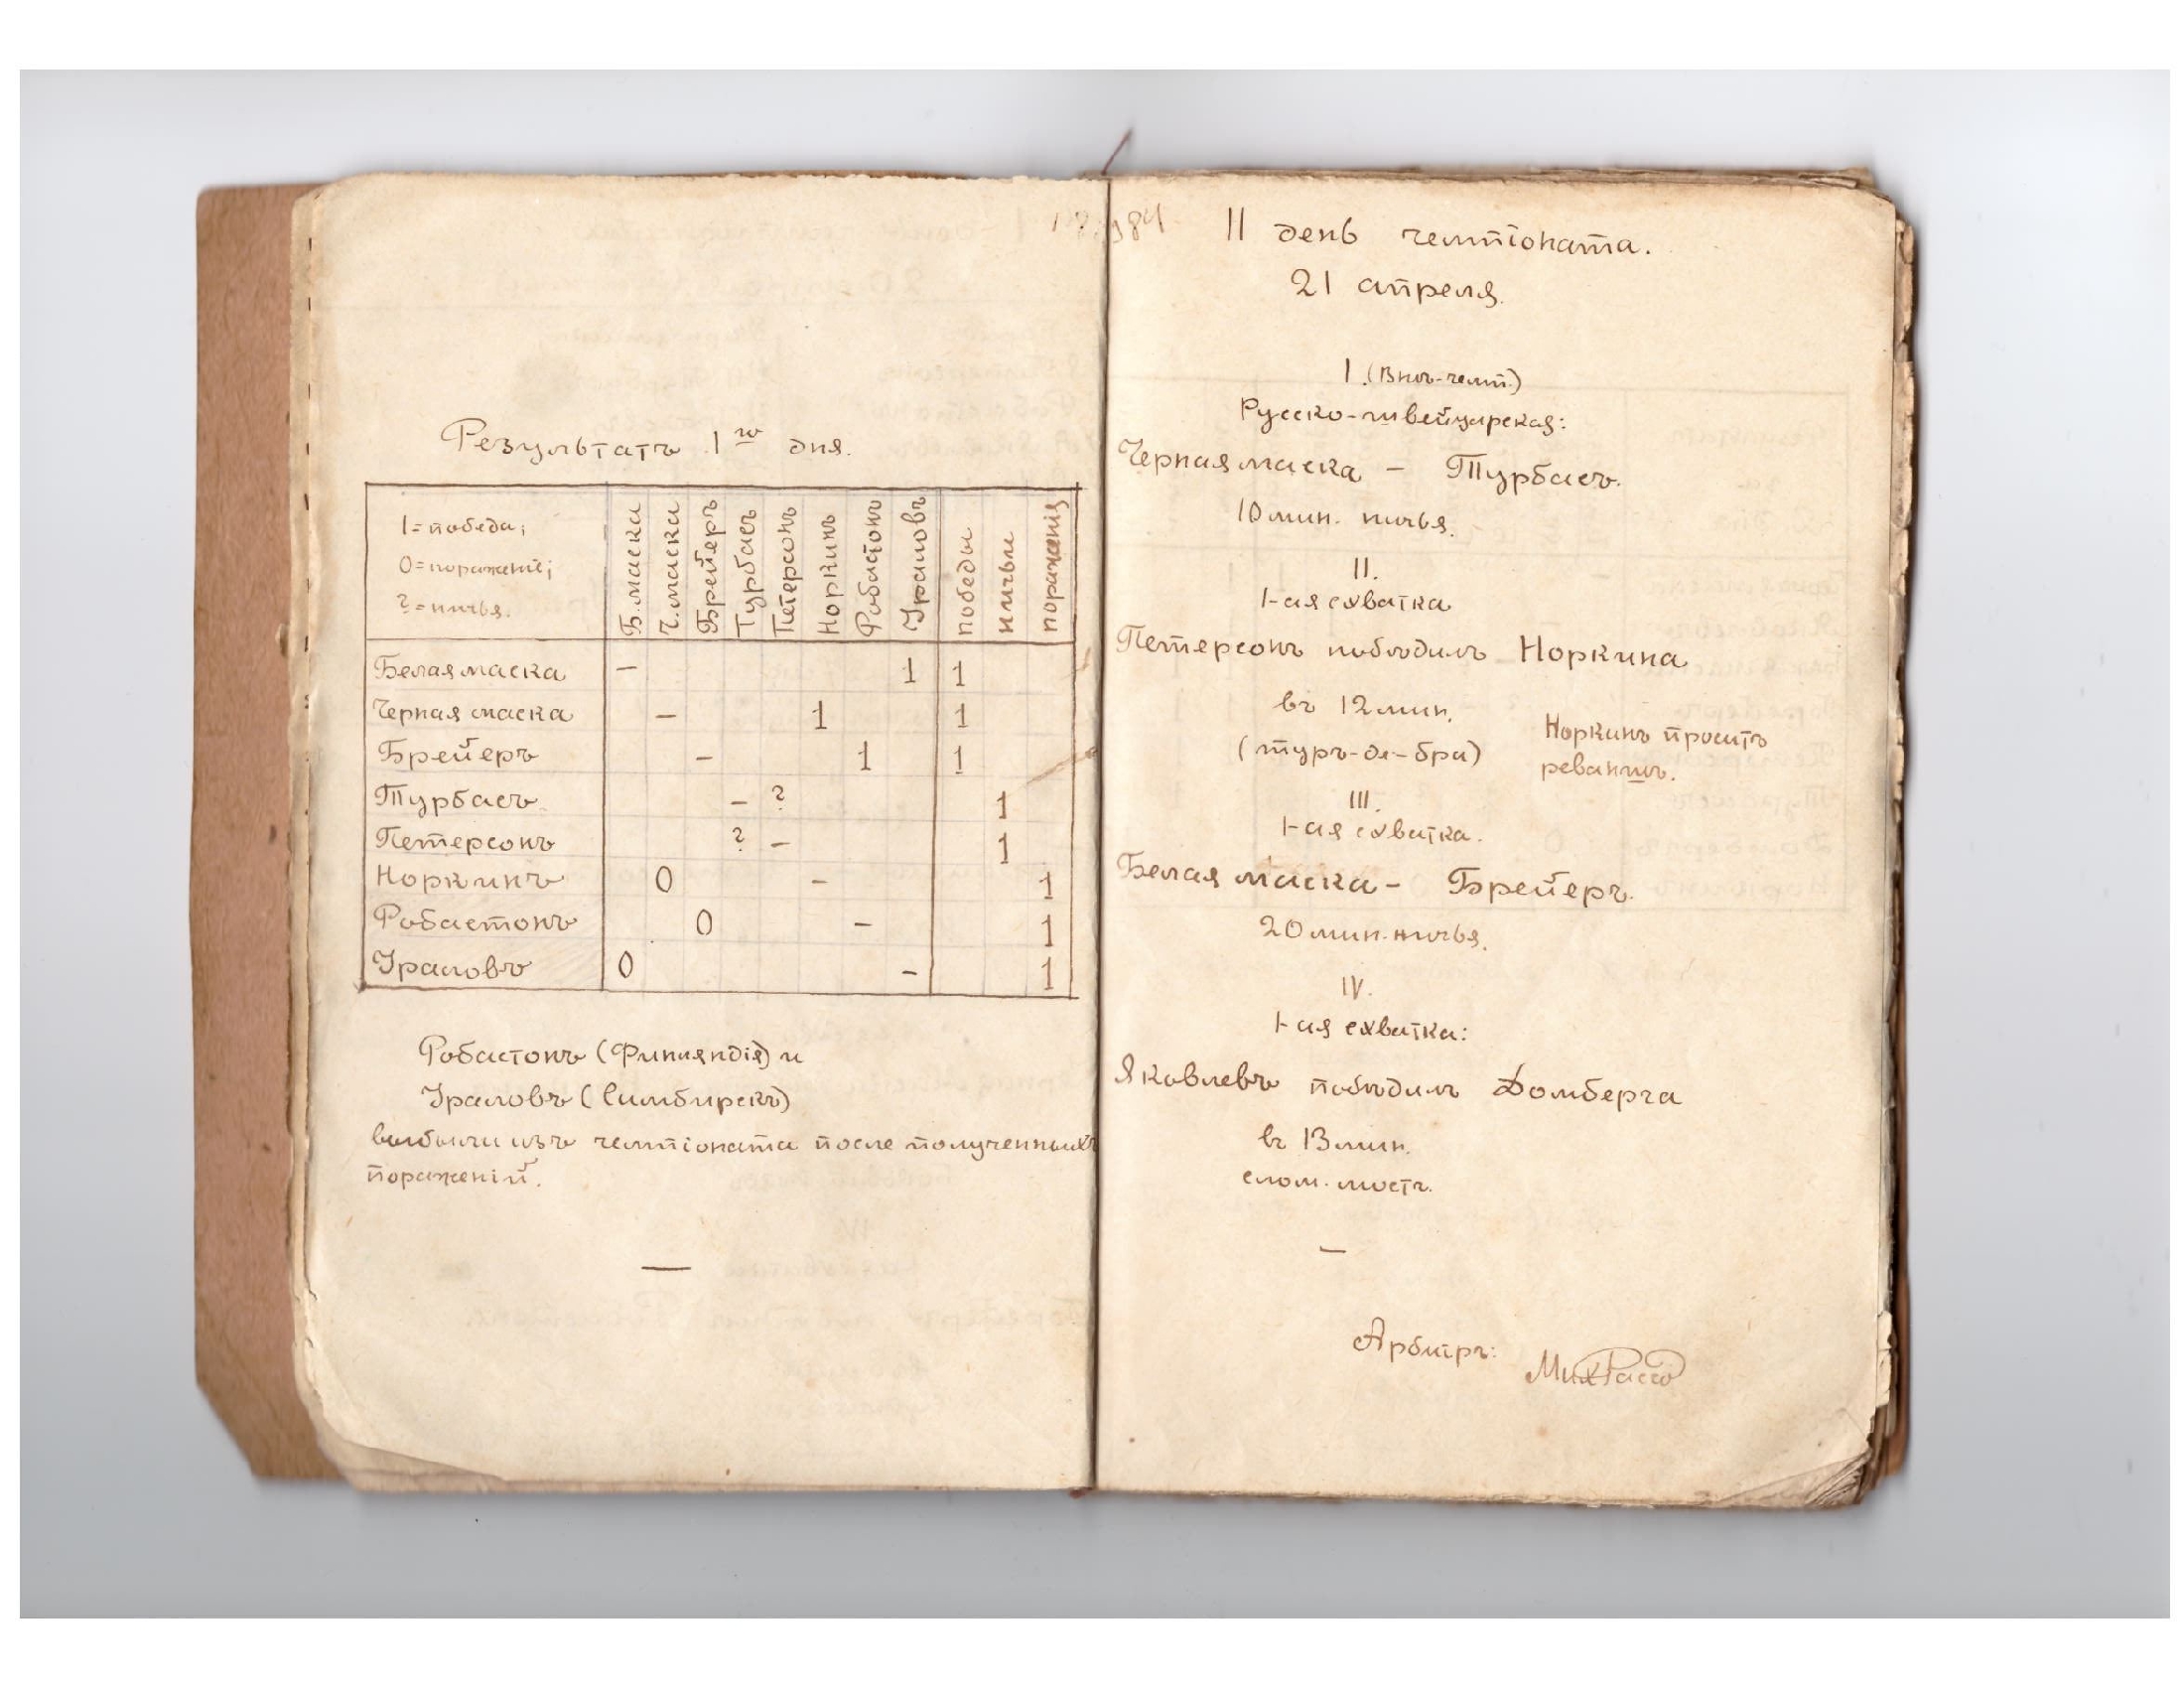 Результатъ 1го дня.
1=победа;
0=пораженіе;
?=ничья.
Б.маска Ч.маска Брейеръ Турбасъ Петерсонъ Норкинъ Робастонъ Ураловъ победы ничьи пораженія
Белая маска – 1 1
Черная маска – 1 1
Брейеръ – 1 1
Турбасъ – ? 1
Петерсонъ ? – 1
Норкинъ 0 – 1
Робастонъ 0 – 1
Ураловъ 0 – 1
Робастонъ (Финляндія) и
Ураловъ (Симбирскъ)
выбыли изъ чемпіоната после полученныхъ
пораженій.
—
II день чемпіоната.
21 апреля.
I. (Внъ-чемп.)
Русско-швейцарская:
Черная маска – Турбасъ.
10 мин. ничья.
II.
1-ая схватка
Петерсонъ побѣдилъ Норкина
въ 12 мин.
(туръ-де-бра)
Норкинъ проситъ
реваншъ.
III.
1-ая схватка.
Белая маска – Брейеръ.
20 мин. ничья.
IV.
1-ая схватка:
Яковлевъ побѣдилъ Домберга
въ 13 мин.
слом. мостъ.
—
Арбитръ: